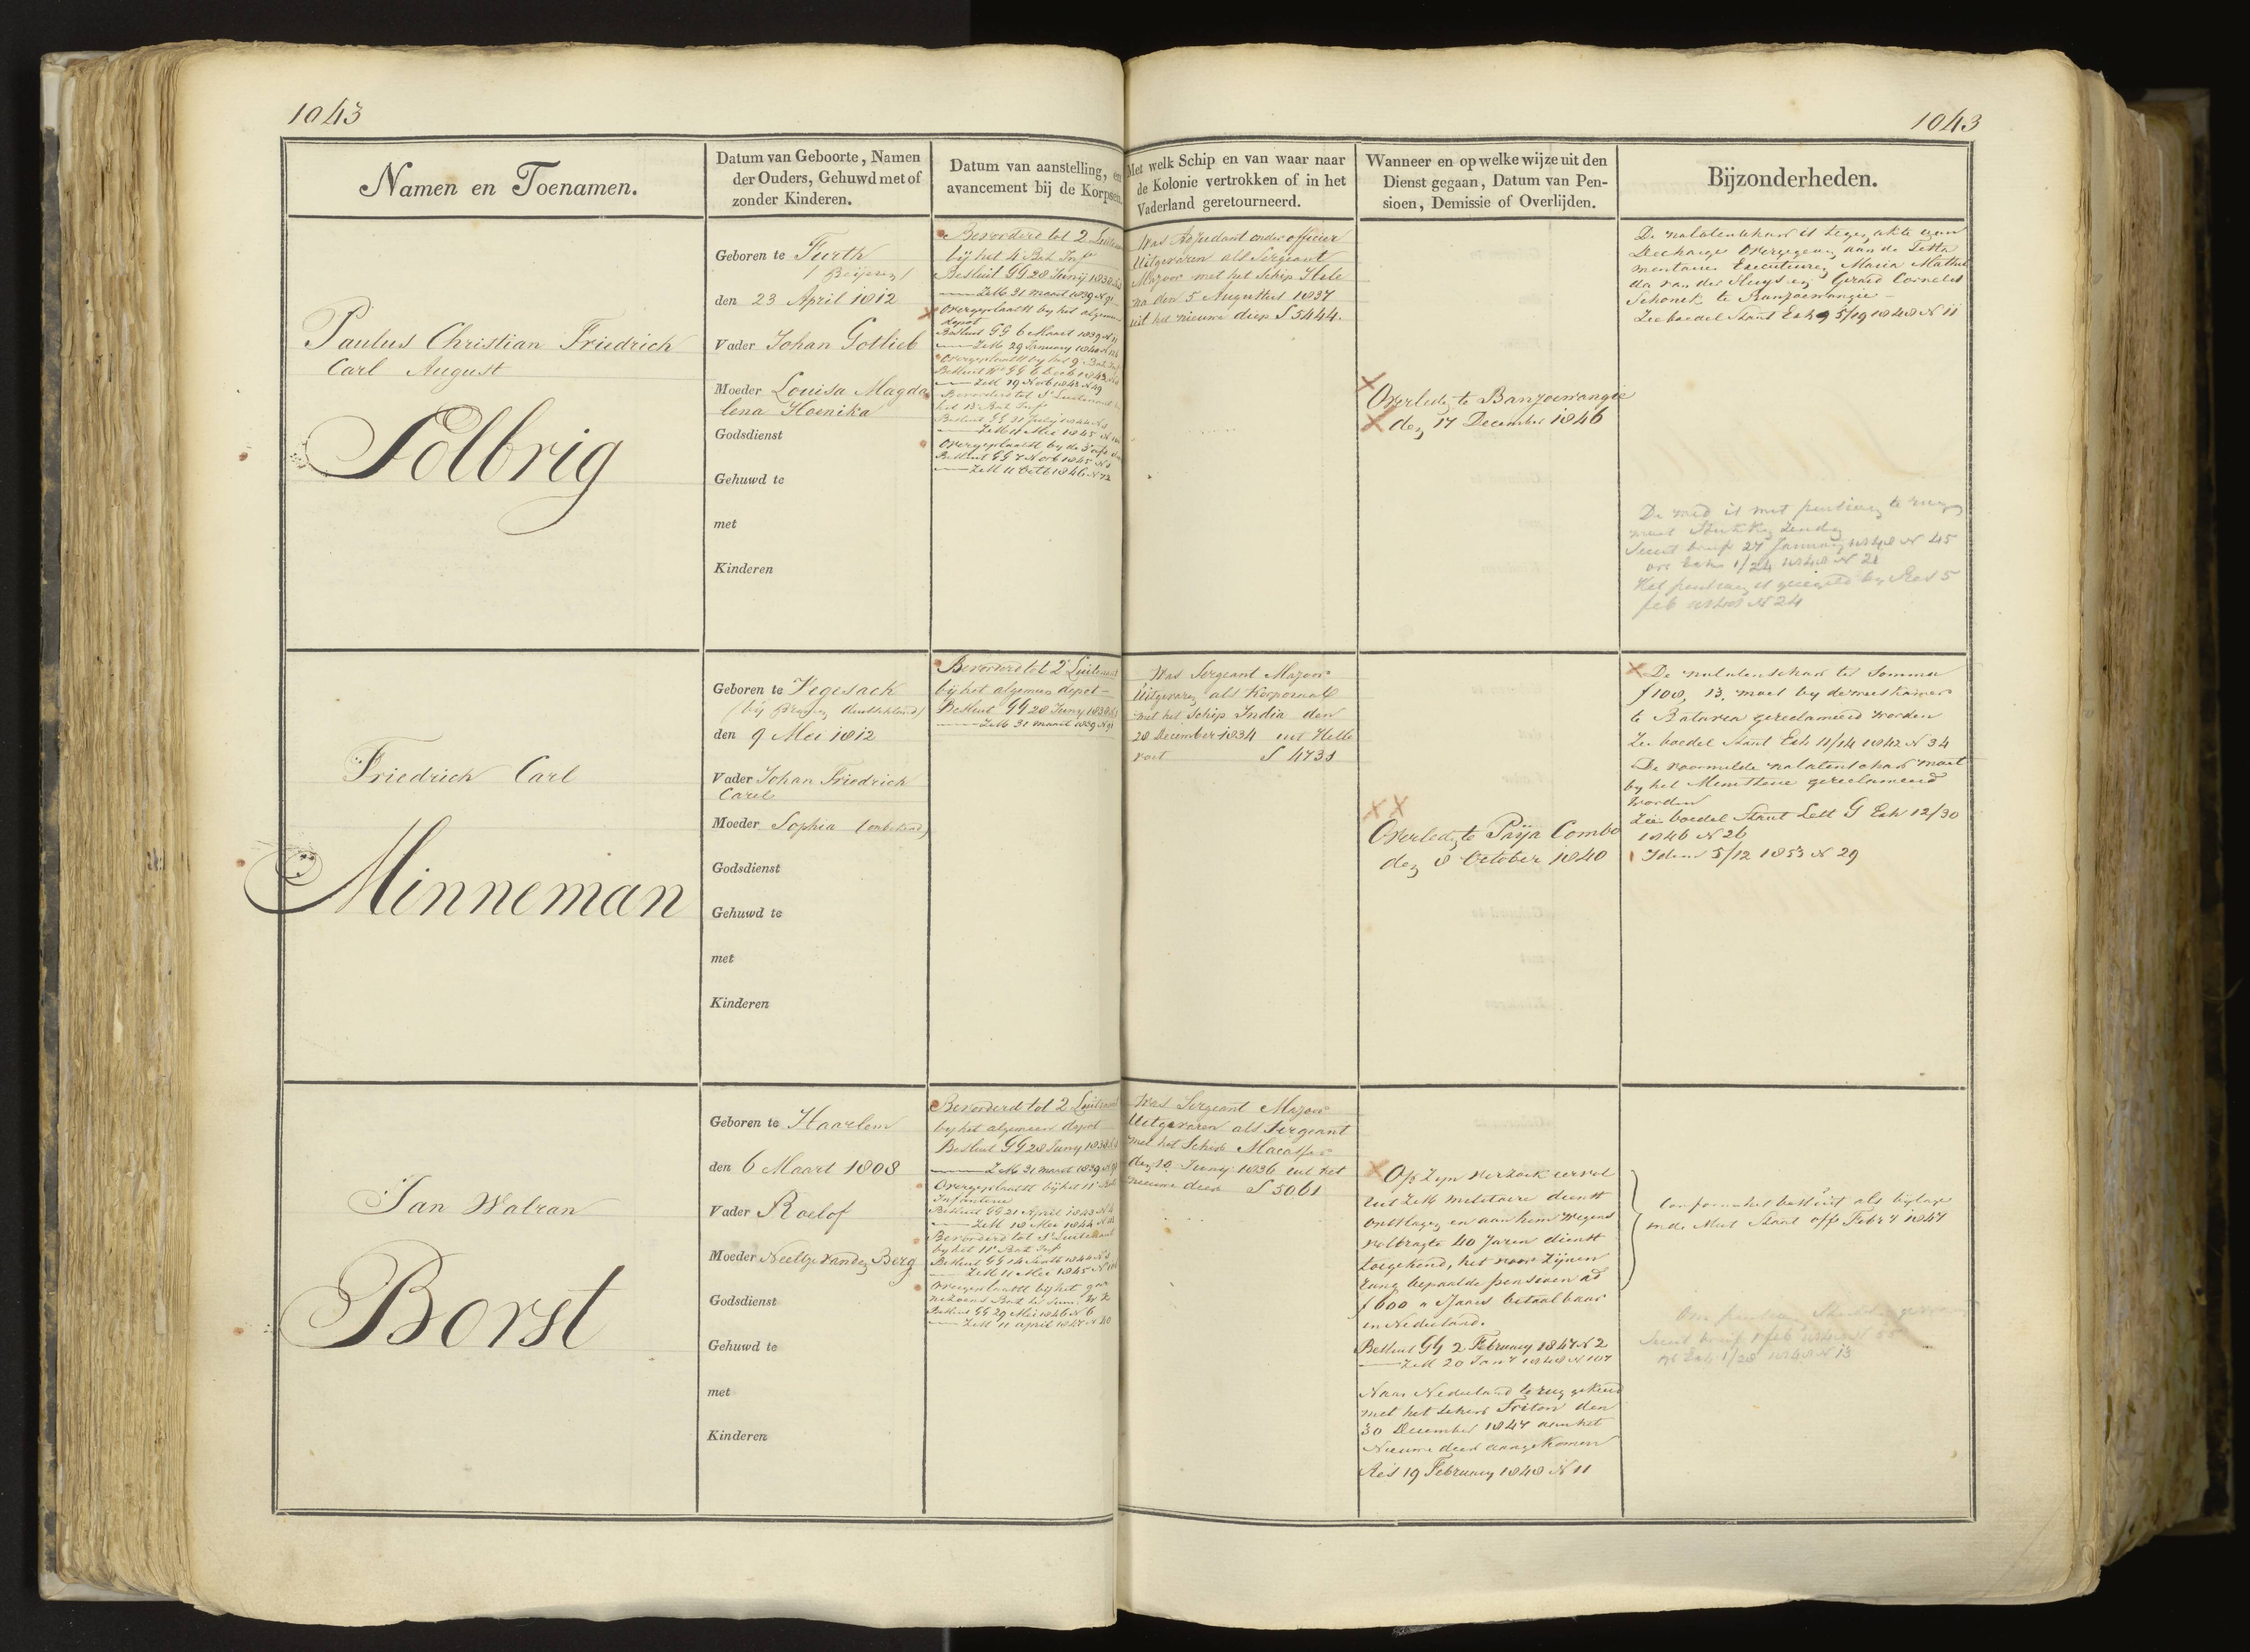 1043
1043
Namen en Toenamen.
Datum van Geboorte, Namen
der Ouders, Gehuwd met of
zonder Kinderen.
Datum van aanstelling, en
avancement bij de Korpsen.
Met welk Schip en van waar naar
de Kolonie vertrokken of in het
Vaderland geretourneerd.
Wanneer en op welke wijze uit den
Dienst gegaan, Datum van Pen-
sioen, Demissie of Overlijden.
Bijzonderheden.
Paulus Christian Friedrich
Carl August
Solbrig
Geboren te Furth
/ Beijeren /
den 23 April 1812
Vader Johan Gotlieb
Moeder Louisa Magda
lena Hoenika
Godsdienst
Gehuwd te
met
Kinderen
Bevorderd tot 2 Luitenant
bij het 4 Bat Infe
Besluit GG 28 Junij 1838
ZM 31 maart 1839 N 91
Overgeplaatst by het algemeen
depot
Besluit GG 6 Maart 1839 N 11
ZM 29 January 1840
Overgeplaatst by het 9 Bat Infe
ZM 19 Novb 1843 N 49
Bevorderd tot 1e Luitenant
het 13 Bat Infe
Besluit GG 31 July 1844 N 2
ZM 11 Mei 1845
Overgeplaatst by de
Besluit GG 7 Novb 1845 N 1
ZM 11 Octb 1846 N 72
Was Adjudant onder officier
Uitgevaren als Sergeant
Majoor met het Schip Hele
na den 5 Augustus 1837
uit het nieuwe diep S 5444.
Overleden te Banjoewangie
den 17 December 1846
De nalatenschap is tegen akte van
Decharge Overgegeven aan de Testa
mentaire Executeuren Maria Mathil
da van der Sluys en Gerard Cornelis
Schonck te Banjoewangie
Zie boedel Staat Exh 9 5/19 1848 N 11
De wed is met pensioen te
moet Stukken zenden
27 January 1848 N 45
Exh 1/24 1848 N 21
Het pensioen is geregeld by Res 5
feb 1848 N 24
Friedrich Carl
Minneman
Geboren te Vegesack
(bij Bremen Duitschland)
den 9 Mei 1812
Vader Johan Friedrich
Carel
Moeder Sophia (onbekend)
Godsdienst
Gehuwd te
met
Kinderen
Bevorderd tot 2 Luitenant
bij het algemeen depot
Besluit GG 28 Juny 1838
ZM 31 maart 1839 N 91
Was Sergeant Majoor
Uitgevaren als Korporaal
met het Schip India den
28 December 1834 uit Helle
voet S 4731
Overleden te Paija Combo
den 8 October 1840
De nalatenschap ter Somma
f 108, 13, moet by de weeskamer
te Batavia gereclameerd worden
Zie boedel Staat Exh 11/14 1842 N 34
De voormelde nalatenschap moet
by het Ministerie gereclameerd
worden
Zie boedel Staat Lett G Exh 12/30
1846 N 26
Idem 5/12 1853 N 29
Jan Walran
Borst
Geboren te Haarlem
den 6 Maart 1808
Vader Roelof
Moeder Neeltje van den Berg
Godsdienst
Gehuwd te
met
Kinderen
Bevorderd tot 2 Luitenant
by het algemeen depot
Besluit GG 28 Juny 1838
ZM 31 maart 1839 N 91
Overgeplaatst bij het 11e Bat
Infanterie
Besluit GG 21 April 1843 N 4
ZM 18 Mei 1844
Bevorderd tot 1e Luitenant
by het 11e Bat Infe
Besluit GG 14 Septb 1844 N 3
ZM 11 Mei 1845
Overgeplaatst bij het gar
nizoens Bat ter Sum: W K
Besluit GG 29 Mei 1846 N 6
ZM 11 april 1847 N 40
Was Sergeant Majoor
Uitgevaren als Sergeant
met het Schip Macasser
den 10 Juny 1836 uit het
nieuwe diep S 5061
Op Zijn verzoek eervol
uit ZM militaire dienst
ontslagen en aan hem wegens
volbragte 40 Jaren dienst
toegekend, het voor Zijnen
rang bepaalde pensioen ad
f 600 's Jaars betaalbaar
in Nederland.
Besluit GG 2 February 1847 N 2
ZM 20 Jany 1848 N 107
Naar Nederland terug gekeerd
met het schip Triton den
30 December 1847 aan het
Nieuwe diep aangekomen
Res 19 February 1848 N 11
Conform het besluit als bijlage
in de Mut Staat off Febry 1847
1 feb 1848 N 55
Exh 1/28 1848 N 13